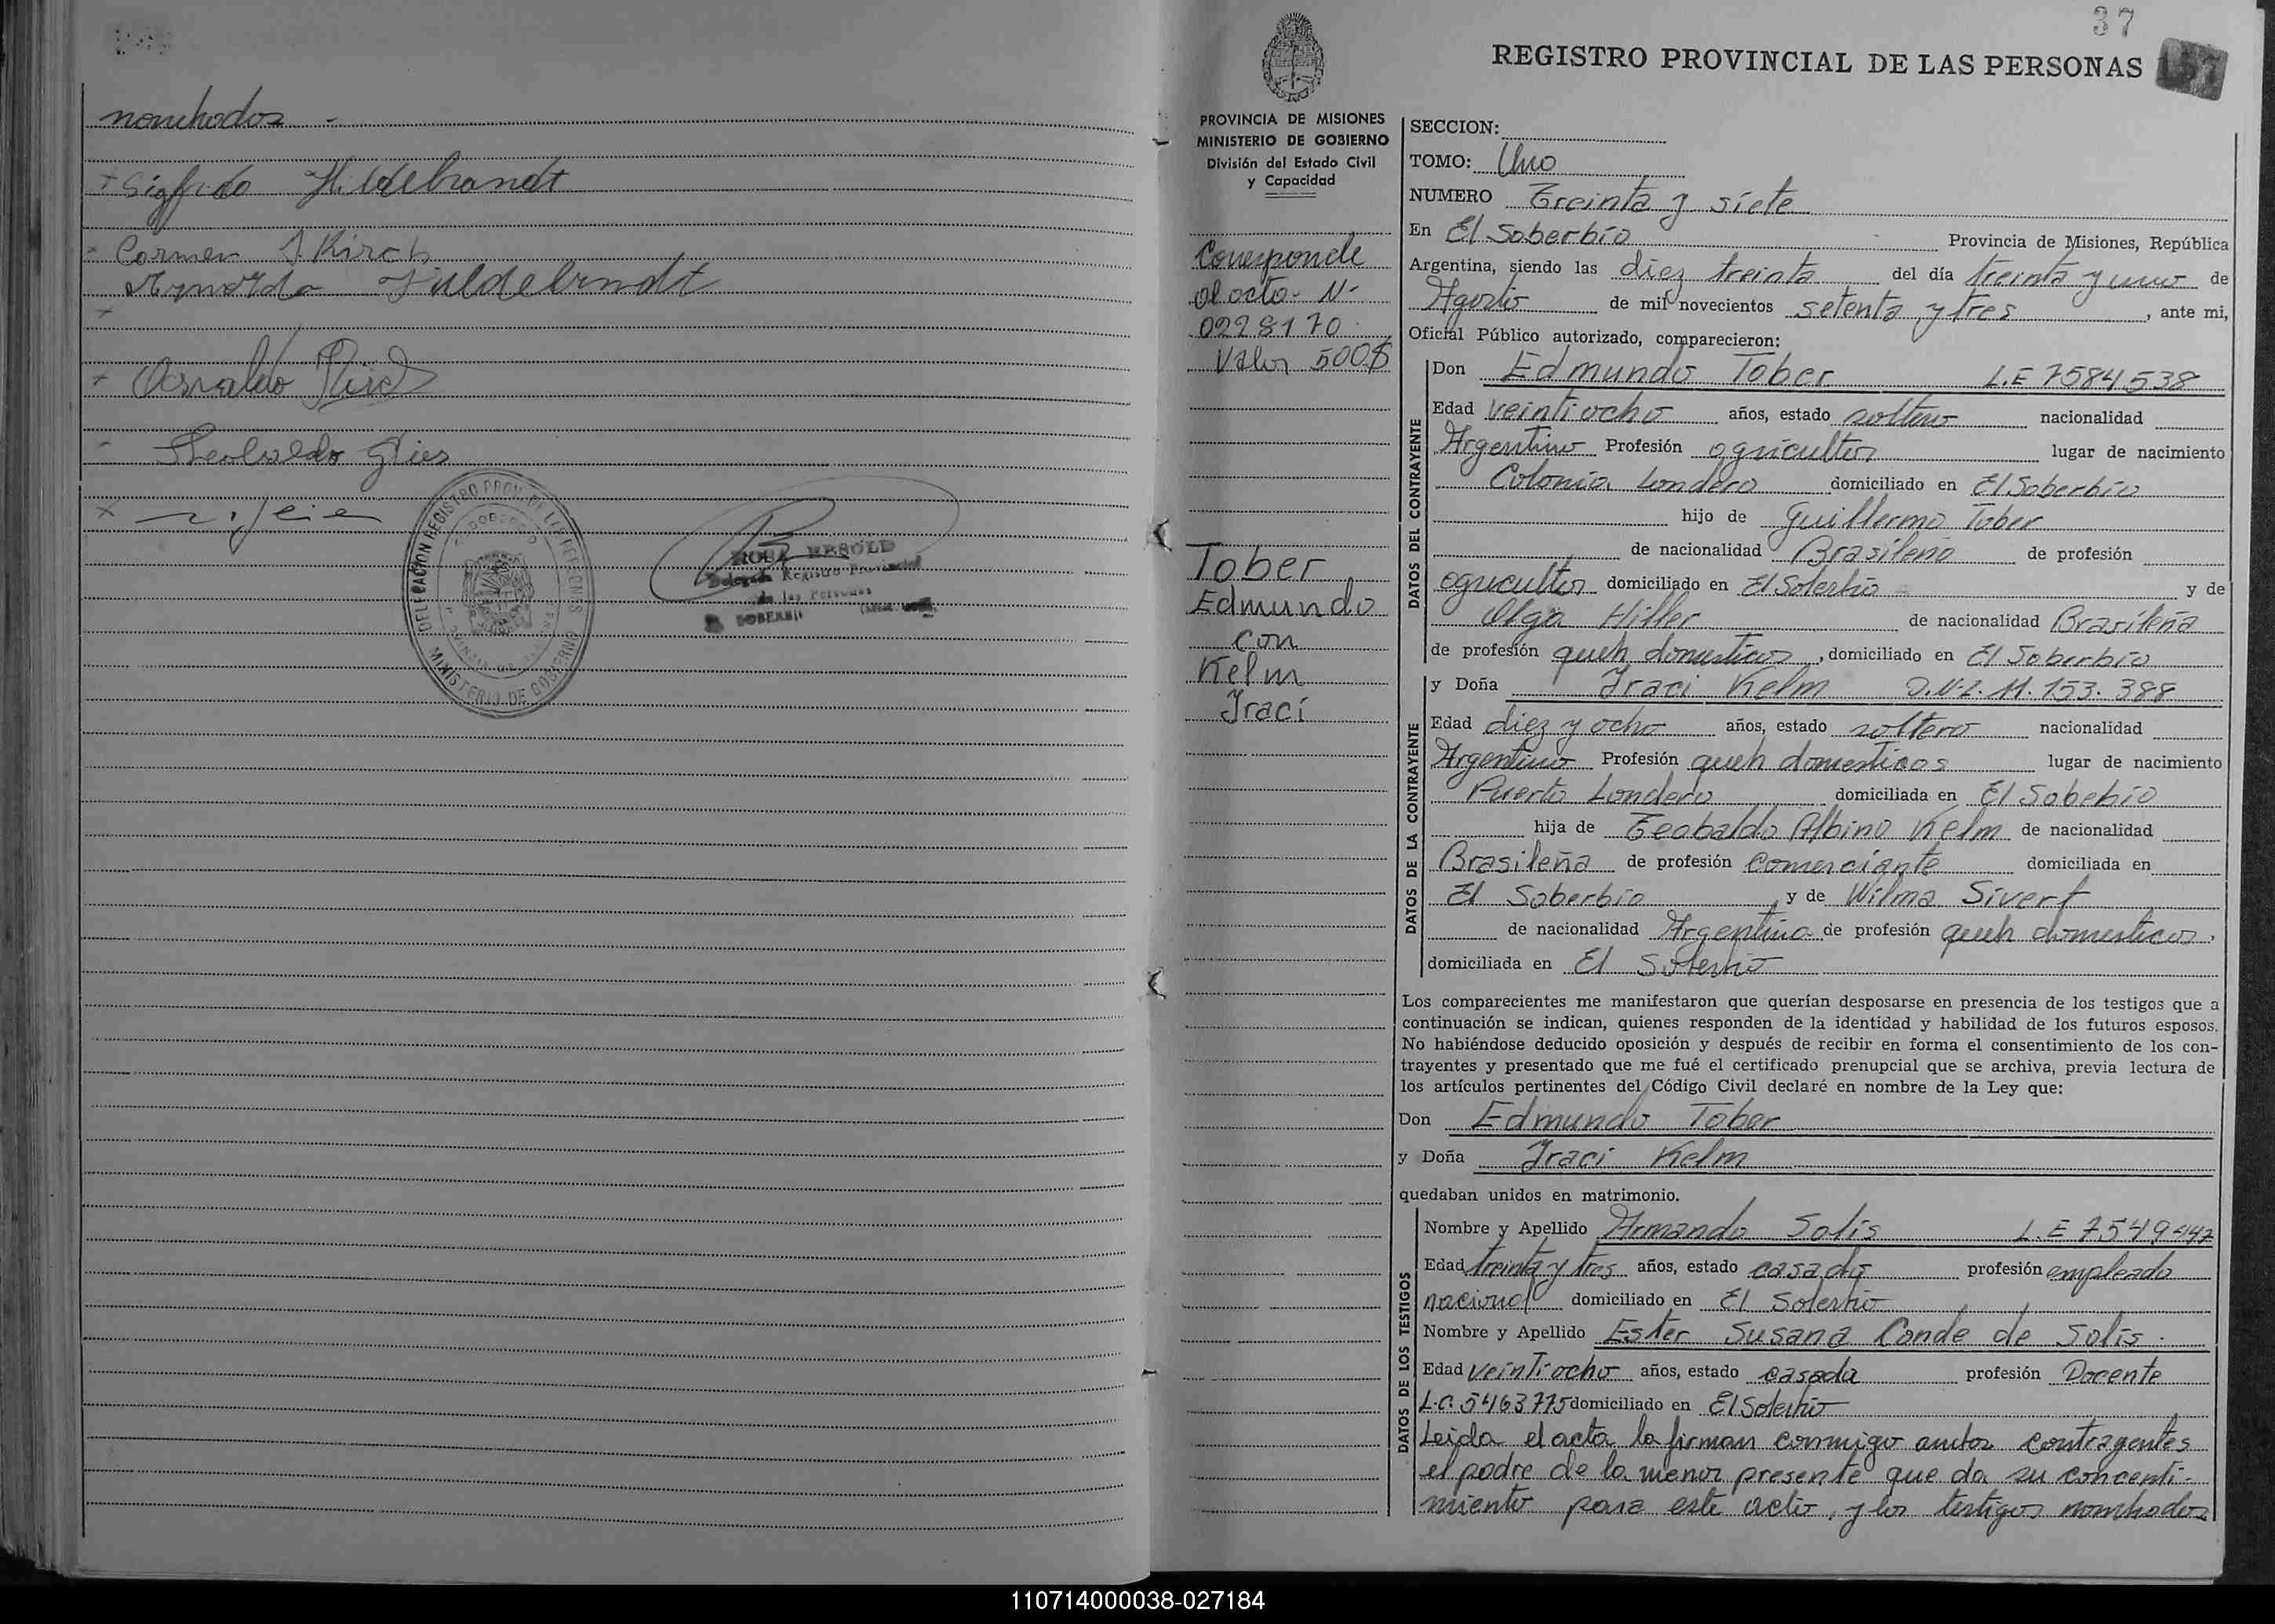 nombrados -
+ Sigfrido Hildebrandt
- Carmen J. Kirch
Arnoldo Hildebrandt
+
+ Osvaldo
- Theobaldo Gries
x
DELEGACION REGISTRO PROV. DE LAS PERSONAS
MINISTERIO DE GOBIERNO
ROSA HEROLD
Delegada Registro Provincial
de las Personas
EL SOBERBIO
37
REGISTRO PROVINCIAL DE LAS PERSONAS
157
PROVINCIA DE MISIONES
MINISTERIO DE GOBIERNO
División del Estado Civil
y Capacidad
Corresponde
al acta N-
0228170
Valor 500$
Tober
Edmundo
con
Kelm
Iraci
SECCION:
TOMO: Uno
NUMERO Treinta y siete
En El Soberbio Provincia de Misiones, República
Argentina, siendo las diez treinta del día treinta y uno de
Agosto de mil novecientos setenta y tres, ante mi,
Oficial Público autorizado, comparecieron:
DATOS DEL CONTRAYENTE
Don Edmundo Tober L.E 7584538
Edad veintiocho años, estado soltero nacionalidad
Argentino Profesión agricultor lugar de nacimiento
Colonia Londero domiciliado en El Soberbio
hijo de Guillermo Tober
de nacionalidad Brasileno de profesión
agricultor domiciliado en El Soberbio y de
Olga Hiller de nacionalidad Brasileña
de profesión queh domesticos, domiciliado en El Soberbio
DATOS DE LA CONTRAYENTE
y Doña Iraci Kelm D.N.I. 11.153.388
Edad diez y ocho años, estado soltera nacionalidad
Argentina Profesión queh domesticos lugar de nacimiento
Puerto Londero domiciliada en El Sobebio
hija de Teobaldo Albino Kelm de nacionalidad
Brasileña de profesión Comerciante domiciliada en
El Soberbio y de Wilma Sivert
de nacionalidad Argentina de profesión queh domesticos,
domiciliada en El Soberbio
Los comparecientes me manifestaron que querían desposarse en presencia de los testigos que a
continuación se indican, quienes responden de la identidad y habilidad de los futuros esposos.
No habiéndose deducido oposición y después de recibir en forma el consentimiento de los con-
trayentes y presentado que me fué el certificado prenupcial que se archiva, previa lectura de
los artículos pertinentes del Código Civil declaré en nombre de la Ley que:
Don Edmundo Tober
y Doña Iraci Kelm
quedaban unidos en matrimonio.
DATOS DE LOS TESTIGOS
Nombre y Apellido Armando Solis L.E 7549447
Edad treinta y tres años, estado casado profesión empleado
nacional domiciliado en El Soberbio
Nombre y Apellido Ester Susana Conde de Solis.
Edad veintiocho años, estado casada profesión Docente
L.C. 5463775 domiciliado en El Soberbio
Leida el acta la firman conmigo ambos contragentes
el padre de la menor presente que da su concenti-
miento para este acto, y los testigos nombrados
110714000038-027184